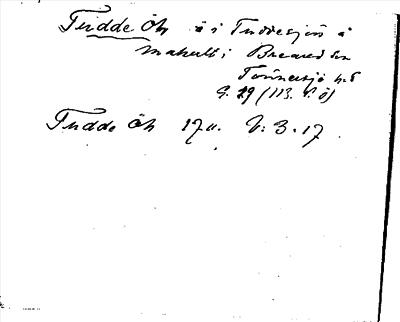 Tudde Öh ö i Tuddesjön å
Mahult i Breared sn
Tönnersjö hd
S. 29 (113. P. Ö)
Tudde Öh 17